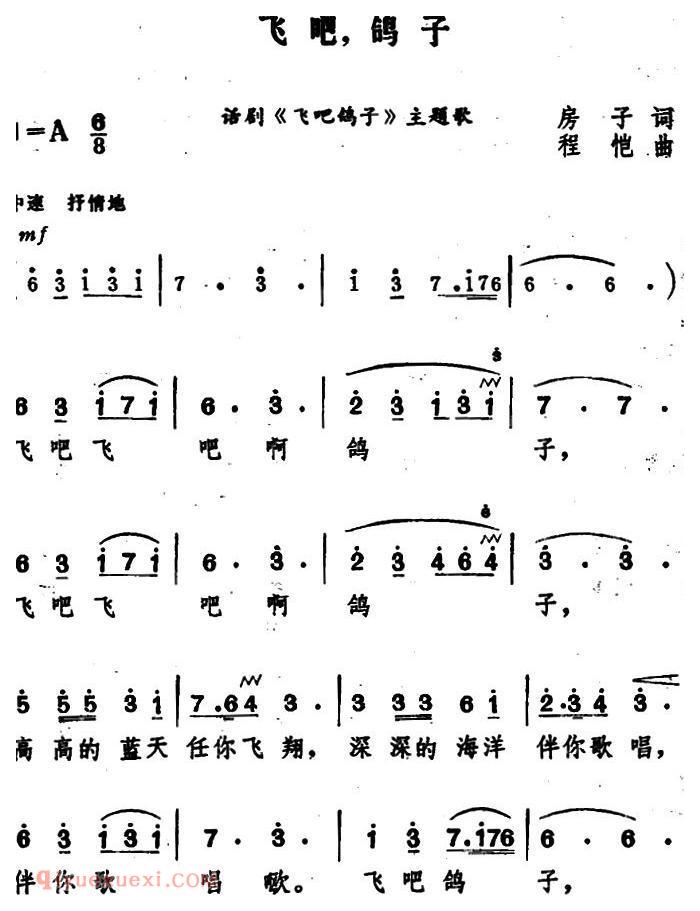 飞吧，鸽子
话剧《飞吧鸽子》主题歌
房子词
程恺曲
1=A 6/8
中速 抒情地
mf
6 3 1 3 1 | 7 . 3 . | 1 3 7 . 1 7 6 | 6 . 6 . )
6 3 1 7 1 | 6 . 3 . | 2 3 1 3 1 | 7 . 7 .
飞吧飞 吧啊 鸽 子，
6 3 1 7 1 | 6 . 3 . | 2 3 4 6 4 | 3 . 3 .
飞吧飞 吧啊 鸽 子，
5 5 5 3 1 | 7 . 6 4 3 . | 3 3 3 6 1 | 2 . 3 4 3 .
高高的蓝天 任你飞翔，深深的海洋 伴你歌唱，
6 3 1 3 1 | 7 . 3 . | 1 3 7 . 1 7 6 | 6 . 6 .
伴你歌 唱 。飞吧鸽 子，